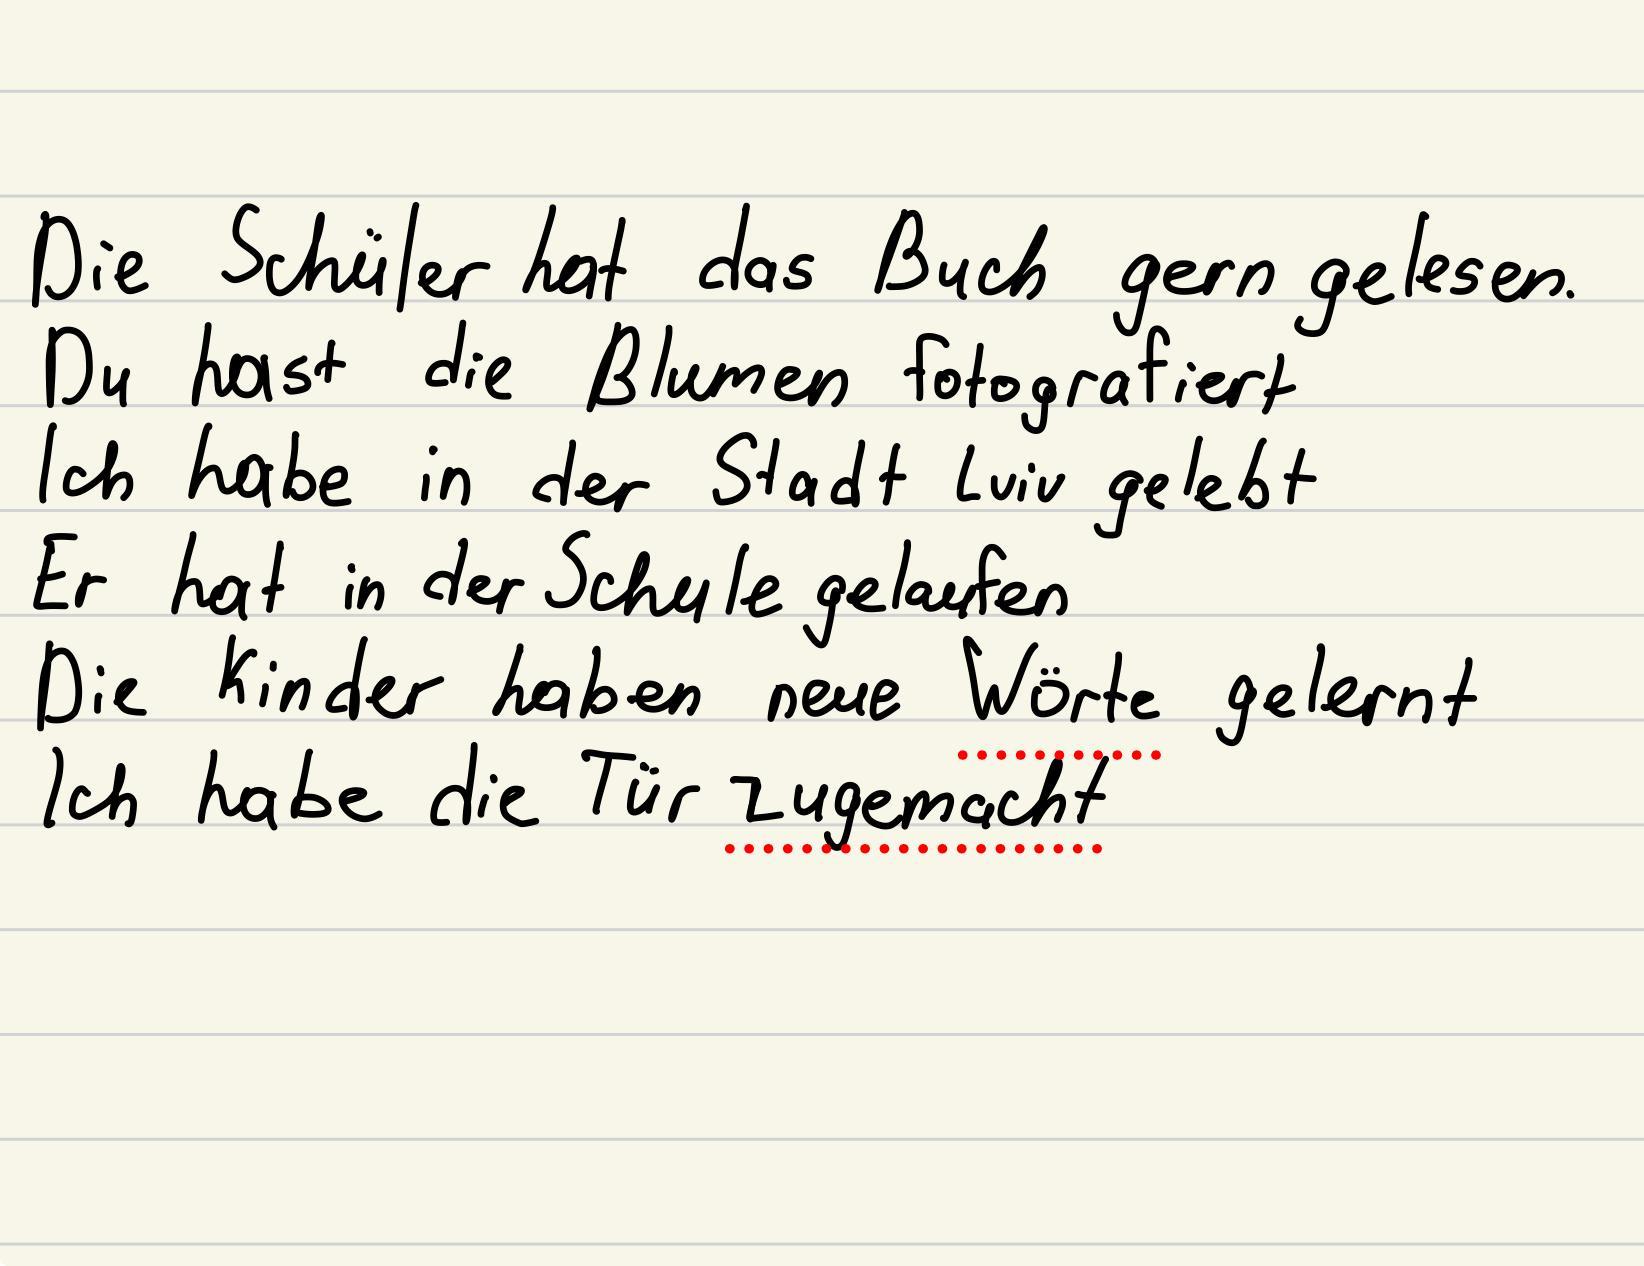 Die Schüler hat das Buch gern gelesen.
Du hast die Blumen fotografiert
Ich habe in der Stadt Lviv gelebt
Er hat in der Schule gelaufen
Die Kinder haben neue Wörte gelernt
Ich habe die Tür zugemacht